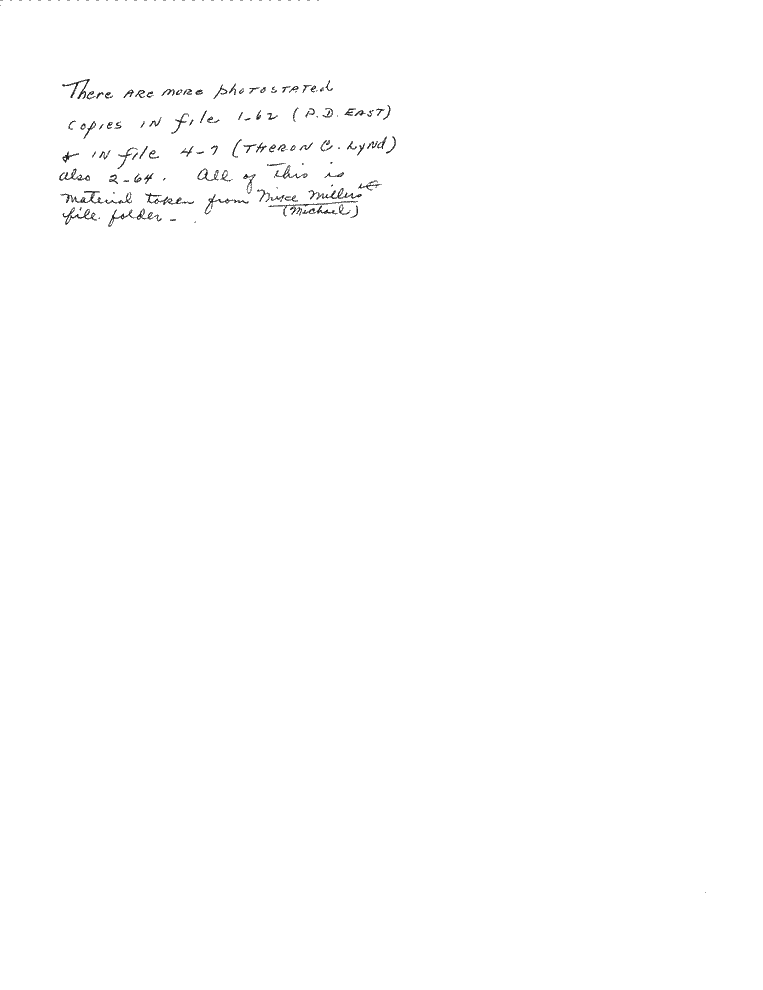 There ARE more photostated
copies IN file 1-62 (P.D. EAST)
& IN file 4-7 (THERON C. LyNd)
also 2-64. All of this is
material taken from Millers
file folder-
(Michael)